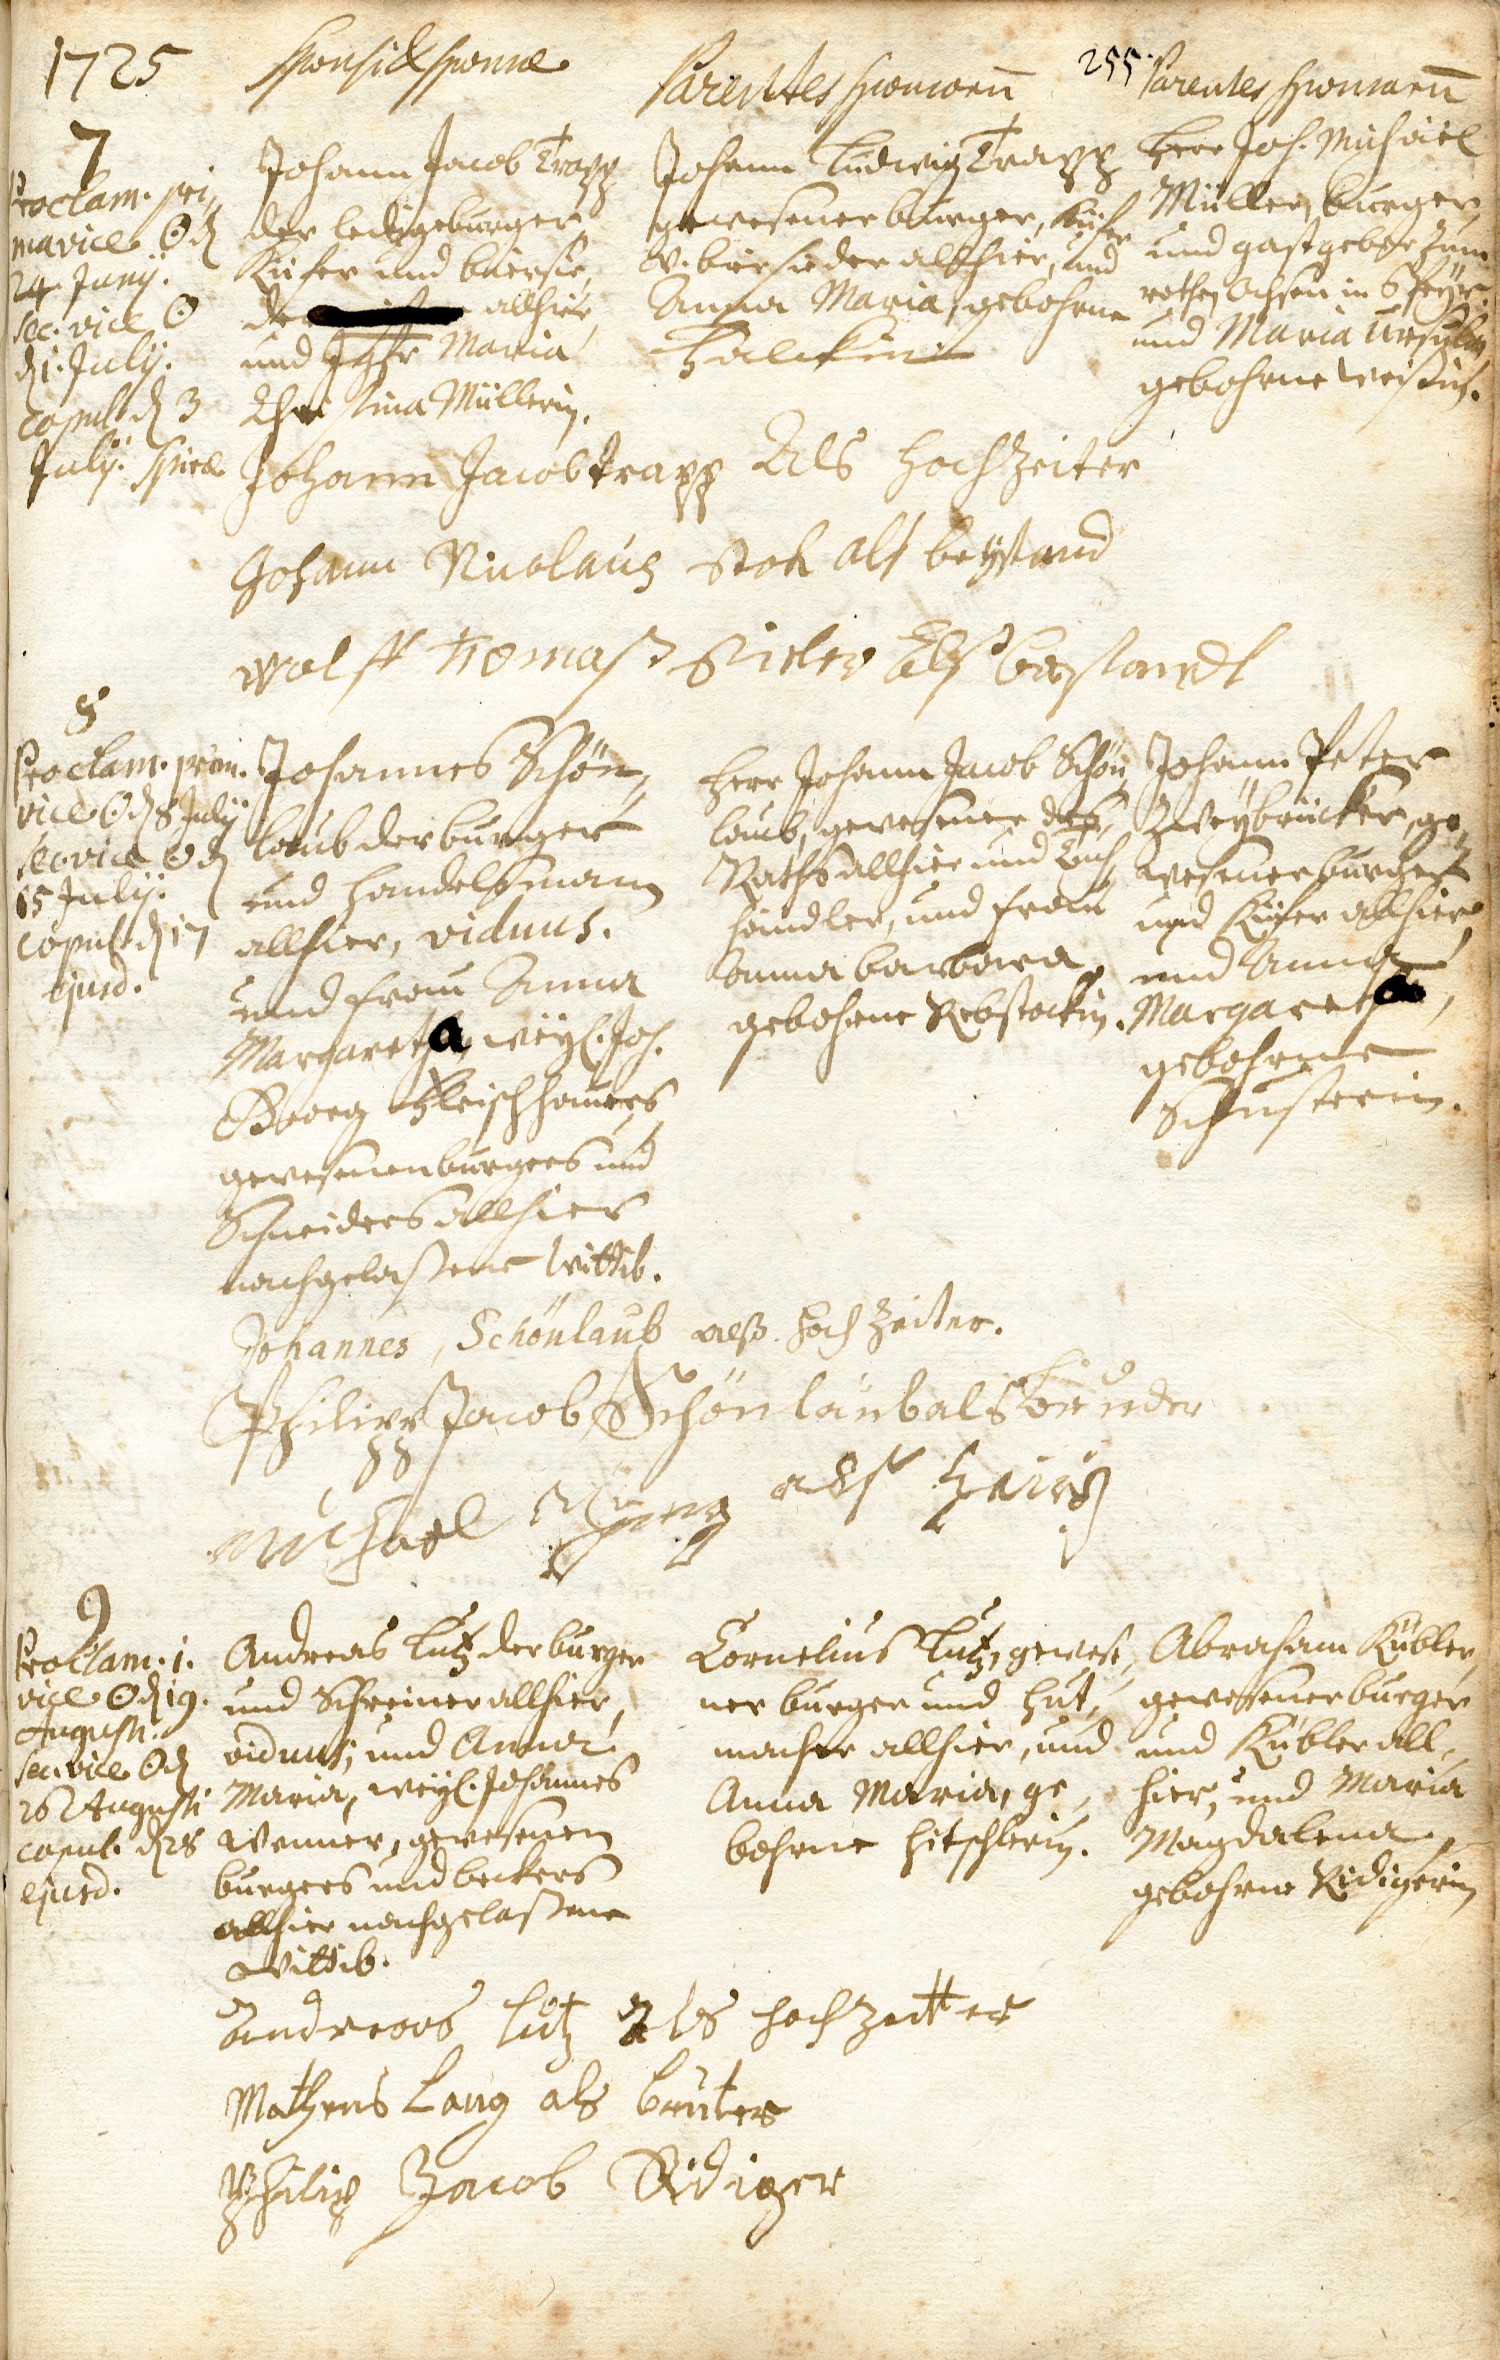 1725
Sponsi & Sponsae
Parentes Sponsorum
255.
Parentes Sponsarum
7
Proclam. pri,
ma vice ☉ d
24. Junij.
sec. vice ☉
d 1. July.
copul. d 3
July. Spirae
Johann Jacob Trapp
der ledige burger,
Küfer und biersie,
der allhier,
und Jgfr Maria
Christina Müllerin.
Johann Ludwig Trapp
gewesener burger, Küfer
v. biersieder allhier, und
Anna Maria, gebohrne
Falckin
Herr Joh. Michael
Müller, burger
und gastgeber zum
rothen Ochsen in Speyer
und Maria Ursula,
gebohrne Weißin.
Johann Jacob Trapp Als Hochzeiter
Johann Nicolaus Stok als beystand
Wolff Tomaß Sieler Als beystandt
8
Proclam. prim.
vice ☉ d 8 July
sec. vice ☉ d
15 July.
copul. d 17
ejusd.
Johannes Schön,
laub der burger
und Handelsmann
allhier, viduus.
und Frau Anna
Margaretha, weyl. Joh.
Georg Fleischhauers,
gewesenen burgers und
Schneiders allhier
nachgelaßene Wittib.
Herr Johann Jacob Schön,
laub, gewesener des
Raths allhier und Tuch,
händler, und Frau
Anna barbara,
gebohrne Rebstockin.
Johann Peter
Zweybrücker, ge,
wesener burger
und Küfer allhier
und Anna
Margaretha,
gebohrne
Schusterin.
Johannes, Schönlaub alß Hochzeiter.
Philipp Jacob Schönlaub als bruder
Michael als
9
Proclam. 1.
vice ☉ d 19.
Augusti.
sec. vice ☉ d
26 Augusti
copul. d 28
ejusd.
Andreas Lutz der burger
und Schreiner allhier,
viduus, und Anna
Maria, weyl. Johannes
Wenner, gewesenen
burgers und beckers
allhier nachgelaßene
Wittib.
Cornelius Lutz, gewese,
ner burger und Hut,
macher allhier, und
Anna Maria, ge,
bohrne Hitschlerin.
Abraham Kübler,
gewesener burger
und Kübler all,
hier, und Maria
Magdalena,
gebohrne Ridigerin
Andreas Lutz Als Hochzeitter
Matheus Lang als bruter
Philip Jacob Ridiger